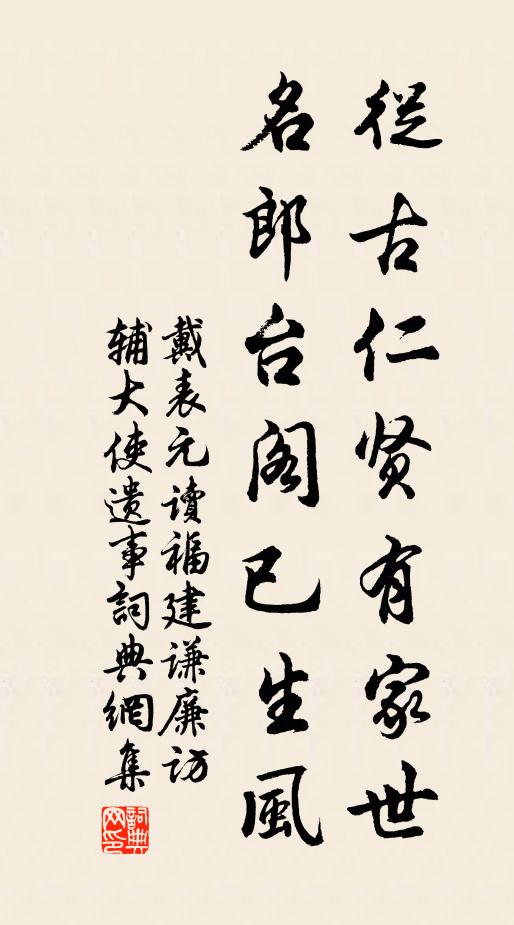 從古仁贤有家世
名郎台阁已生風
戴表元讀福建谦廉访
辅大使遗事詞典網集
詞典网印